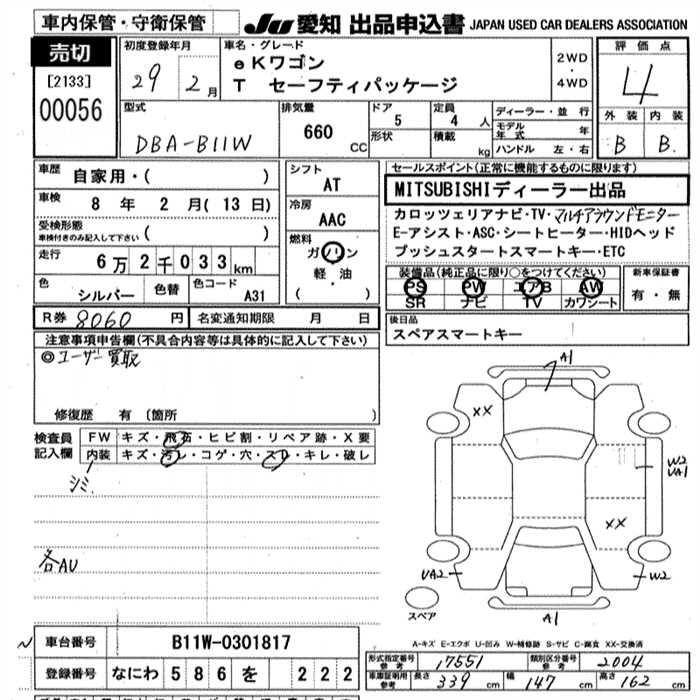 車内保管・守衛保管
JU 愛知 出品申込書 JAPAN USED CAR DEALERS ASSOCIATION
売切
[2133]
00056
初度登録年月
29 2月
車名・グレード
eKワゴン
T セーフティパッケージ
2WD
・
4WD
評価点
4
外装 内装
B B.
型式
DBA-B11W
排気量
660 CC
ドア 5
形状
定員 4 人
積載 kg
ディーラー・並行
モデル年式 年
ハンドル 左・右
車歴 自家用・( )
車検 8 年 2 月( 13 日)
受検形態
車検付きのみ記入して下さい ( )
走行 6万2千033km
色 シルバー 色替 色コード A31
シフト
AT
冷房
AAC
燃料
ガソリン
軽・油
( )
セールスポイント(正常に機能するものに限ります)
MITSUBISHIディーラー出品
カロッツェリアナビ・TV・マルチアラウンドモニター
E-アシスト・ASC・シートヒーター・HIDヘッド
プッシュスタートスマートキー・ETC
装備品(純正品に限り○をつけてください)
PS PW エアB AW
SR ナビ TV カワシート
新車保証書
有・無
R券 8060 円 名変通知期限 月 日
後日品
スペアスマートキー
注意事項申告欄(不具合内容等は具体的に記入して下さい)
◎ユーザー買取
修復歴 有 (箇所 )
検査員記入欄
FW キズ・飛石・ヒビ割・リペア跡・X要
内装 キズ・汚レ・コゲ・穴・スレ・キレ・破レ
シミ
各AU
A1
XX
W2
UA1
XX
UA2
W2
A1
スペア
A-キズ E-エクボ U-凹み W-補修跡 S-サビ C-腐食 XX-交換済
車台番号 B11W-0301817
登録番号 なにわ 586 を 222
形式指定番号参考 17551 類別区分番号参考 2004
車庫証明用参考 長さ 339 cm 幅 147 cm 高さ 162 cm